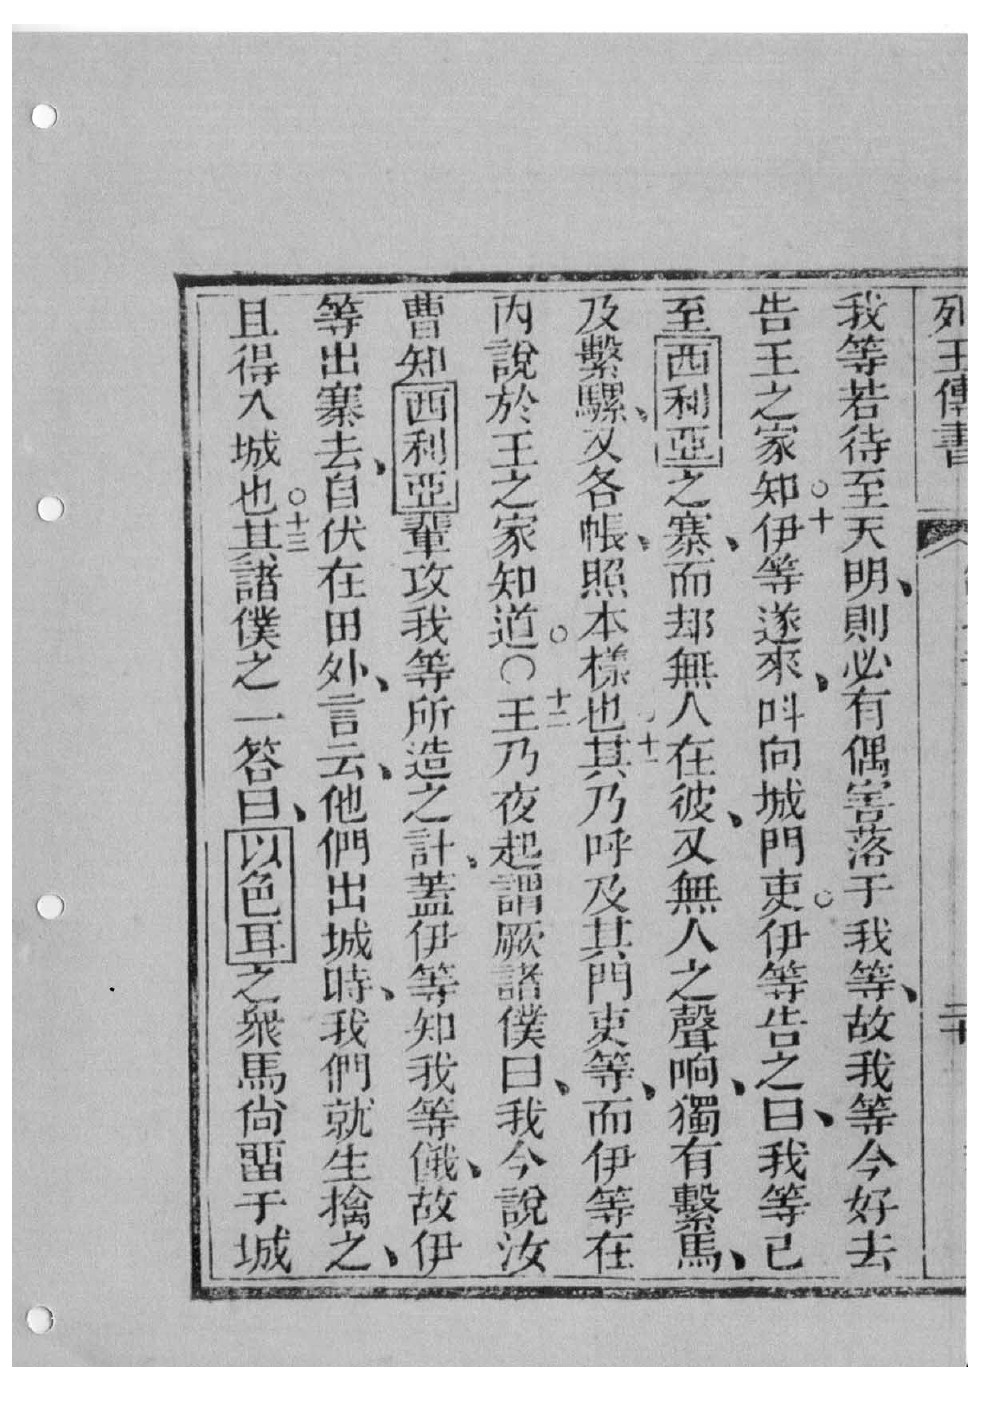 列王傳書 二十
我等若待至天明、則必有偶害落于我等、故我等今好去
告王之家知○十伊等遂來、呌向城門吏○伊等告之曰、我等已
至西利亞之寨、而却無人在彼、又無人之聲响、獨有繫馬、
及繫騾、又各帳、照本樣也○十一其乃呼及其門吏等、而伊等在
內說於王之家知道○○十二王乃夜起謂厥諸僕曰、我今說汝
曹知西利亞輩攻我等所造之計、蓋伊等知我等餓、故伊
等出寨去、自伏在田外、言云、他們出城時、我們就生擒之、
且得入城也○十三其諸僕之一答曰、以色耳之衆馬尚畱于城